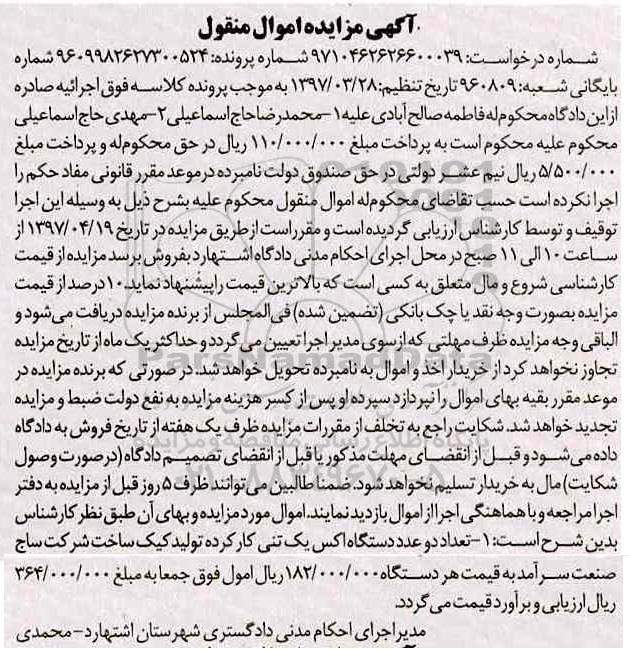 آگهی مزایده اموال منقول
شماره درخواست: ۹۷۱۰۴۶۲۶۲۶۶۰۰۰۳۹ شماره پرونده: ۹۶۰۹۹۸۲۶۲۷۳۰۰۵۲۴ شماره
بایگانی شعبه: ۹۶۰۸۰۹ تاریخ تنظیم: ۱۳۹۷/۰۳/۲۸ به موجب پرونده کلاسه فوق اجرائیه صادره
از این دادگاه محکوم له فاطمه صالح آبادی علیه ۱-محمدرضا حاج اسماعیلی ۲-مهدی حاج اسماعیلی
محکوم علیه محکوم است به پرداخت مبلغ ۱۱۰/۰۰۰/۰۰۰ ریال در حق محکوم له و پرداخت مبلغ
۵/۵۰۰/۰۰۰ ریال نیم عشر دولتی در حق صندوق دولت نامبرده در موعد مقرر قانونی مفاد حکم را
اجرا نکرده است حسب تقاضای محکوم له اموال منقول محکوم علیه بشرح ذیل به وسیله این اجرا
توقیف و توسط کارشناس ارزیابی گردیده است و مقرر است از طریق مزایده در تاریخ ۱۳۹۷/۰۴/۱۹ از
ساعت ۱۰ الی ۱۱ صبح در محل اجرای احکام مدنی دادگاه اشتهارد بفروش برسد مزایده از قیمت
کارشناسی شروع و مال متعلق به کسی است که بالاترین قیمت را پیشنهاد نماید. ۱۰ درصد از قیمت
مزایده بصورت وجه نقد یا چک بانکی (تضمین شده) فی المجلس از برنده مزایده دریافت می شود و
الباقی وجه مزایده ظرف مهلتی که از سوی مدیر اجرا تعیین می گردد و حداکثر یک ماه از تاریخ مزایده
تجاوز نخواهد کرد از خریدار اخذ و اموال به نامبرده تحویل خواهد شد. در صورتی که برنده مزایده در
موعد مقرر بقیه بهای اموال را نپردازد سپرده او پس از کسر هزینه مزایده به نفع دولت ضبط و مزایده
تجدید خواهد شد. شکایت راجع به تخلف از مقررات مزایده ظرف یک هفته از تاریخ فروش به دادگاه
داده می شود و قبل از انقضای مهلت مذکور یا قبل از انقضای تصمیم دادگاه (در صورت وصول
شکایت) مال به خریدار تسلیم نخواهد شود. ضمنا طالبین می توانند ظرف ۵ روز قبل از مزایده به دفتر
اجرا مراجعه و با هماهنگی اجرا از اموال بازدید نمایند. اموال مورد مزایده و بهای آن طبق نظر کارشناس
بدین شرح است: ۱-تعداد دو عدد دستگاه اکس یک تنی کار کرده تولید کیک ساخت شرکت ساج
صنعت سرآمد به قیمت هر دستگاه ۱۸۲/۰۰۰/۰۰۰ ریال امول فوق جمعا به مبلغ ۳۶۴/۰۰۰/۰۰۰
ریال ارزیابی و برآورد قیمت می گردد.
مدیر اجرای احکام مدنی دادگستری شهرستان اشتهارد-محمدی